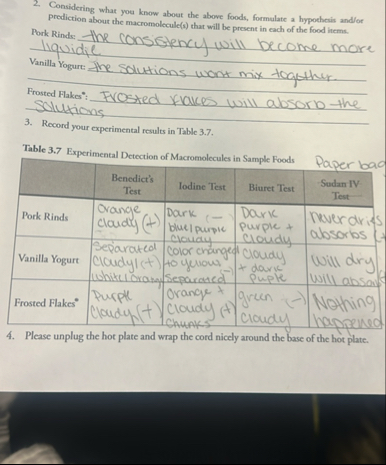 2. Considering what you know about the above foods, formulate a hypothesis and/or
prediction about the macromolecule(s) that will be present in each of the food items.
Pork Rinds: the consistency will become more
liquidie
Vanilla Yogurt: The solutions wont mix together.
Frosted Flakes*: Frosted Flakes will absorb the
solutions
3. Record your experimental results in Table 3.7.
Table 3.7 Experimental Detection of Macromolecules in Sample Foods
Paper bag
Benedict's Test
Iodine Test
Biuret Test
Sudan IV Test
Pork Rinds
orange
cloudy (+)
Dark (-)
blue/purple
cloudy
Dark
purple +
cloudy
never dries
absorbs (+
Vanilla Yogurt
separated
cloudy (+)
white/orang
color changed
to yellow (-)
separated
cloudy
+ dark
puple
will dry
will absorb
Frosted Flakes*
Purple
cloudy (+)
orange +
cloudy (+)
chunks
green (-)
cloudy
Nothing
happened
4. Please unplug the hot plate and wrap the cord nicely around the base of the hot plate.